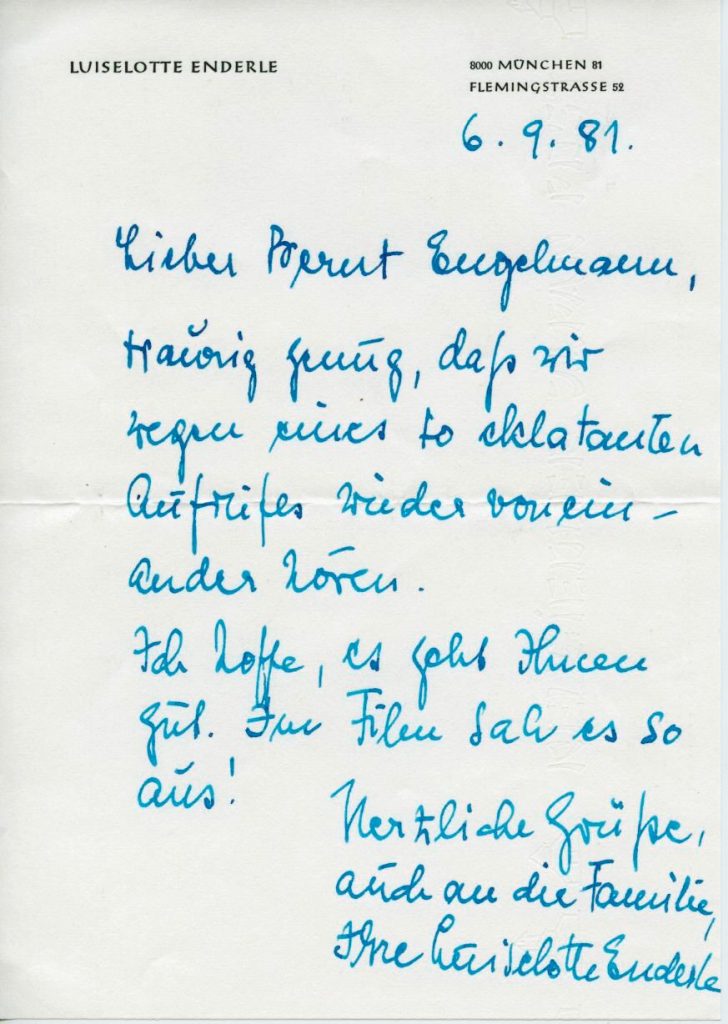 LUISELOTTE ENDERLE
8000 MÜNCHEN 81
FLEMINGSTRASSE 52
6. 9. 81.
Lieber Bernt Engelmann,
traurig genug, daß wir
wegen eines so eklatanten
Aufrufes wieder vonein-
ander hören.
Ich hoffe, es geht Ihnen
gut. Im Film sah es so
aus!
Herzliche Grüße,
auch an die Familie,
Ihre Luiselotte Enderle